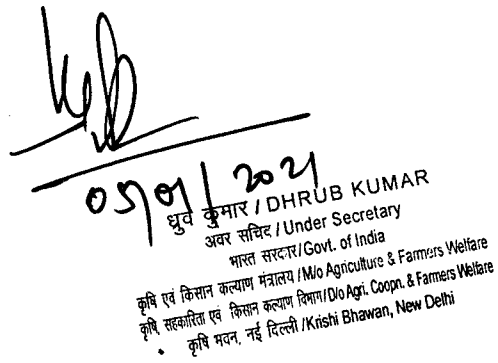 05/01/2021
ध्रुव कुमार / DHRUB KUMAR
अवर सचिव / Under Secretary
भारत सरकार/Govt. of India
कृषि एवं किसान कल्याण मंत्रालय / M/o Agriculture & Farmers Welfare
कृषि, सहकारिता एवं किसान कल्याण विभाग/D/o Agri. Coopn. & Farmers Welfare
कृषि भवन, नई दिल्ली /Krishi Bhawan, New Delhi